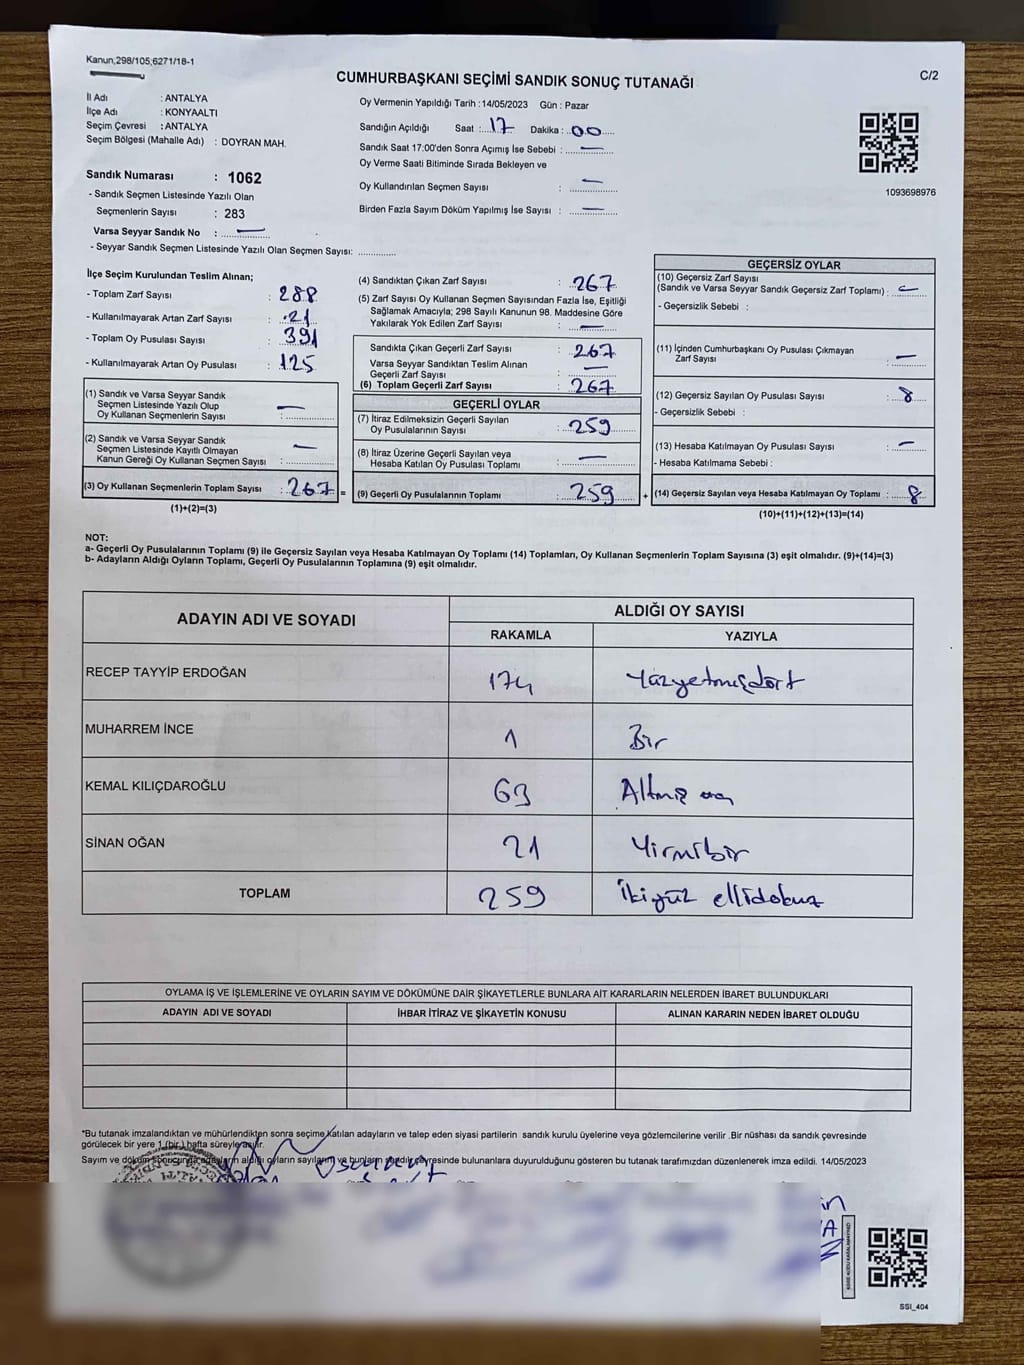 Kanun,298/105;6271/18-1
C/2
CUMHURBAŞKANI SEÇİMİ SANDIK SONUÇ TUTANAĞI
İl Adı : ANTALYA
İlçe Adı : KONYAALTI
Seçim Çevresi : ANTALYA
Seçim Bölgesi (Mahalle Adı) : DOYRAN MAH.
Sandık Numarası : 1062
- Sandık Seçmen Listesinde Yazılı Olan
Seçmenlerin Sayısı : 283
Varsa Seyyar Sandık No : —
- Seyyar Sandık Seçmen Listesinde Yazılı Olan Seçmen Sayısı:
Oy Vermenin Yapıldığı Tarih : 14/05/2023 Gün : Pazar
Sandığın Açıldığı Saat : 17 Dakika : 00
Sandık Saat 17:00'den Sonra Açımış İse Sebebi : —
Oy Verme Saati Bitiminde Sırada Bekleyen ve
Oy Kullandırılan Seçmen Sayısı : —
Birden Fazla Sayım Döküm Yapılmış İse Sayısı : —
1093698976
İlçe Seçim Kurulundan Teslim Alınan;
- Toplam Zarf Sayısı : 288
- Kullanılmayarak Artan Zarf Sayısı : 21
- Toplam Oy Pusulası Sayısı : 391
- Kullanılmayarak Artan Oy Pusulası : 125
(1) Sandık ve Varsa Seyyar Sandık
Seçmen Listesinde Yazılı Olup
Oy Kullanan Seçmenlerin Sayısı : —
(2) Sandık ve Varsa Seyyar Sandık
Seçmen Listesinde Kayıtlı Olmayan
Kanun Gereği Oy Kullanan Seçmen Sayısı : —
(3) Oy Kullanan Seçmenlerin Toplam Sayısı : 267 =
(1)+(2)=(3)
(4) Sandıktan Çıkan Zarf Sayısı : 267
(5) Zarf Sayısı Oy Kullanan Seçmen Sayısından Fazla İse, Eşitliği
Sağlamak Amacıyla; 298 Sayılı Kanunun 98. Maddesine Göre
Yakılarak Yok Edilen Zarf Sayısı : —
Sandıkta Çıkan Geçerli Zarf Sayısı : 267
Varsa Seyyar Sandıktan Teslim Alınan
Geçerli Zarf Sayısı : —
(6) Toplam Geçerli Zarf Sayısı : 267
GEÇERLİ OYLAR
(7) İtiraz Edilmeksizin Geçerli Sayılan
Oy Pusulalarının Sayısı : 259
(8) İtiraz Üzerine Geçerli Sayılan veya
Hesaba Katılan Oy Pusulası Toplamı : —
(9) Geçerli Oy Pusulalarının Toplamı : 259 +
GEÇERSİZ OYLAR
(10) Geçersiz Zarf Sayısı
(Sandık ve Varsa Seyyar Sandık Geçersiz Zarf Toplamı) : —
- Geçersizlik Sebebi :
(11) İçinden Cumhurbaşkanı Oy Pusulası Çıkmayan
Zarf Sayısı : —
(12) Geçersiz Sayılan Oy Pusulası Sayısı : 8
- Geçersizlik Sebebi :
(13) Hesaba Katılmayan Oy Pusulası Sayısı : —
- Hesaba Katılmama Sebebi :
(14) Geçersiz Sayılan veya Hesaba Katılmayan Oy Toplamı : 8
(10)+(11)+(12)+(13)=(14)
NOT:
a- Geçerli Oy Pusulalarının Toplamı (9) ile Geçersiz Sayılan veya Hesaba Katılmayan Oy Toplamı (14) Toplamları, Oy Kullanan Seçmenlerin Toplam Sayısına (3) eşit olmalıdır. (9)+(14)=(3)
b- Adayların Aldığı Oyların Toplamı, Geçerli Oy Pusulalarının Toplamına (9) eşit olmalıdır.
ADAYIN ADI VE SOYADI ALDIĞI OY SAYISI
RAKAMLA YAZIYLA
RECEP TAYYİP ERDOĞAN 174 Yüzyetmişdört
MUHARREM İNCE 1 Bir
KEMAL KILIÇDAROĞLU 63 Altmış üç
SİNAN OĞAN 21 Yirmibir
TOPLAM 259 İkiyüz ellidokuz
OYLAMA İŞ VE İŞLEMLERİNE VE OYLARIN SAYIM VE DÖKÜMÜNE DAİR ŞİKAYETLERLE BUNLARA AİT KARARLARIN NELERDEN İBARET BULUNDUKLARI
ADAYIN ADI VE SOYADI İHBAR İTİRAZ VE ŞİKAYETİN KONUSU ALINAN KARARIN NEDEN İBARET OLDUĞU
*Bu tutanak imzalandıktan ve mühürlendikten sonra seçime katılan adayların ve talep eden siyasi partilerin sandık kurulu üyelerine veya gözlemcilerine verilir .Bir nüshası da sandık çevresinde
görülecek bir yere 1 (bir ) hafta süreyle asılır.
Sayım ve döküm sonucunda adayların aldığı oyların sayıları ve bunların sandık çevresinde bulunanlara duyurulduğunu gösteren bu tutanak tarafımızdan düzenlenerek imza edildi. 14/05/2023
SSI_404